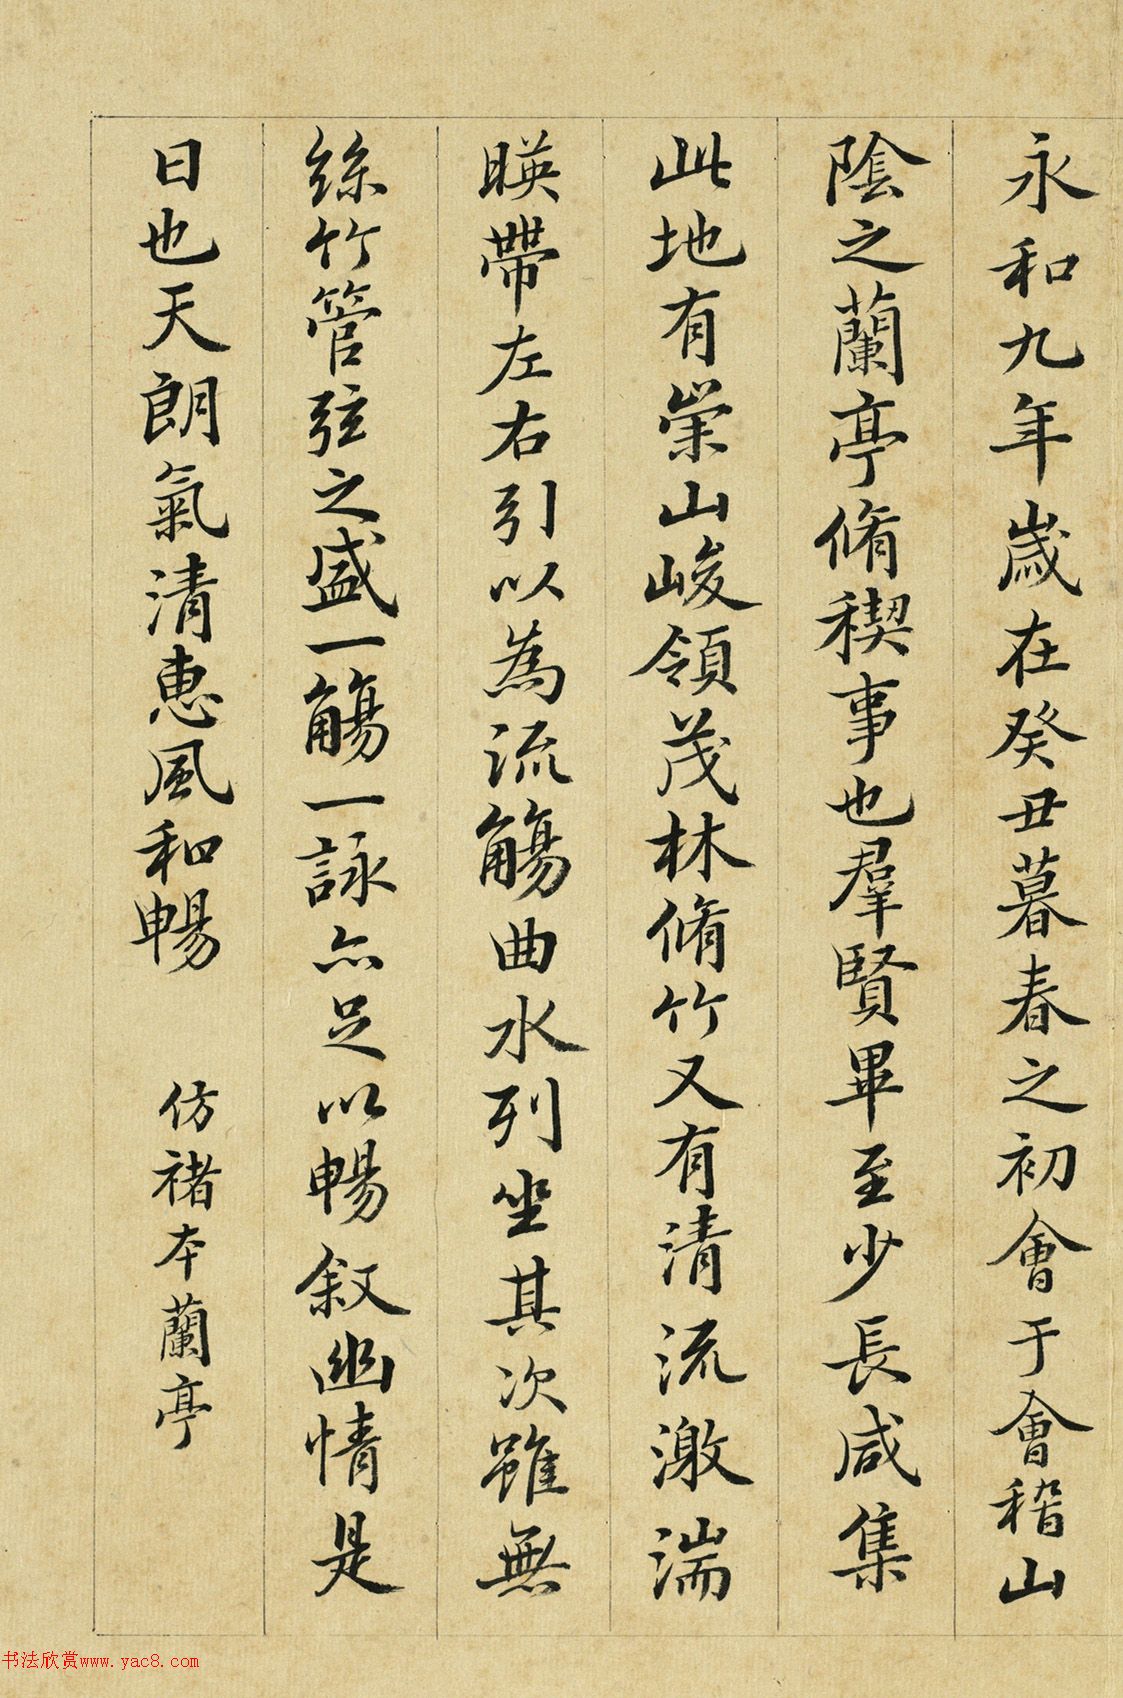 永和九年歲在癸丑暮春之初會于會稽山
陰之蘭亭脩稧事也羣賢畢至少長咸集
此地有崇山峻領茂林脩竹又有清流激湍
暎帶左右引以為流觴曲水列坐其次雖無
絲竹管弦之盛一觴一詠亦足以暢叙幽情是
日也天朗氣清惠風和暢
仿褚本蘭亭
书法欣赏www.yac8.com